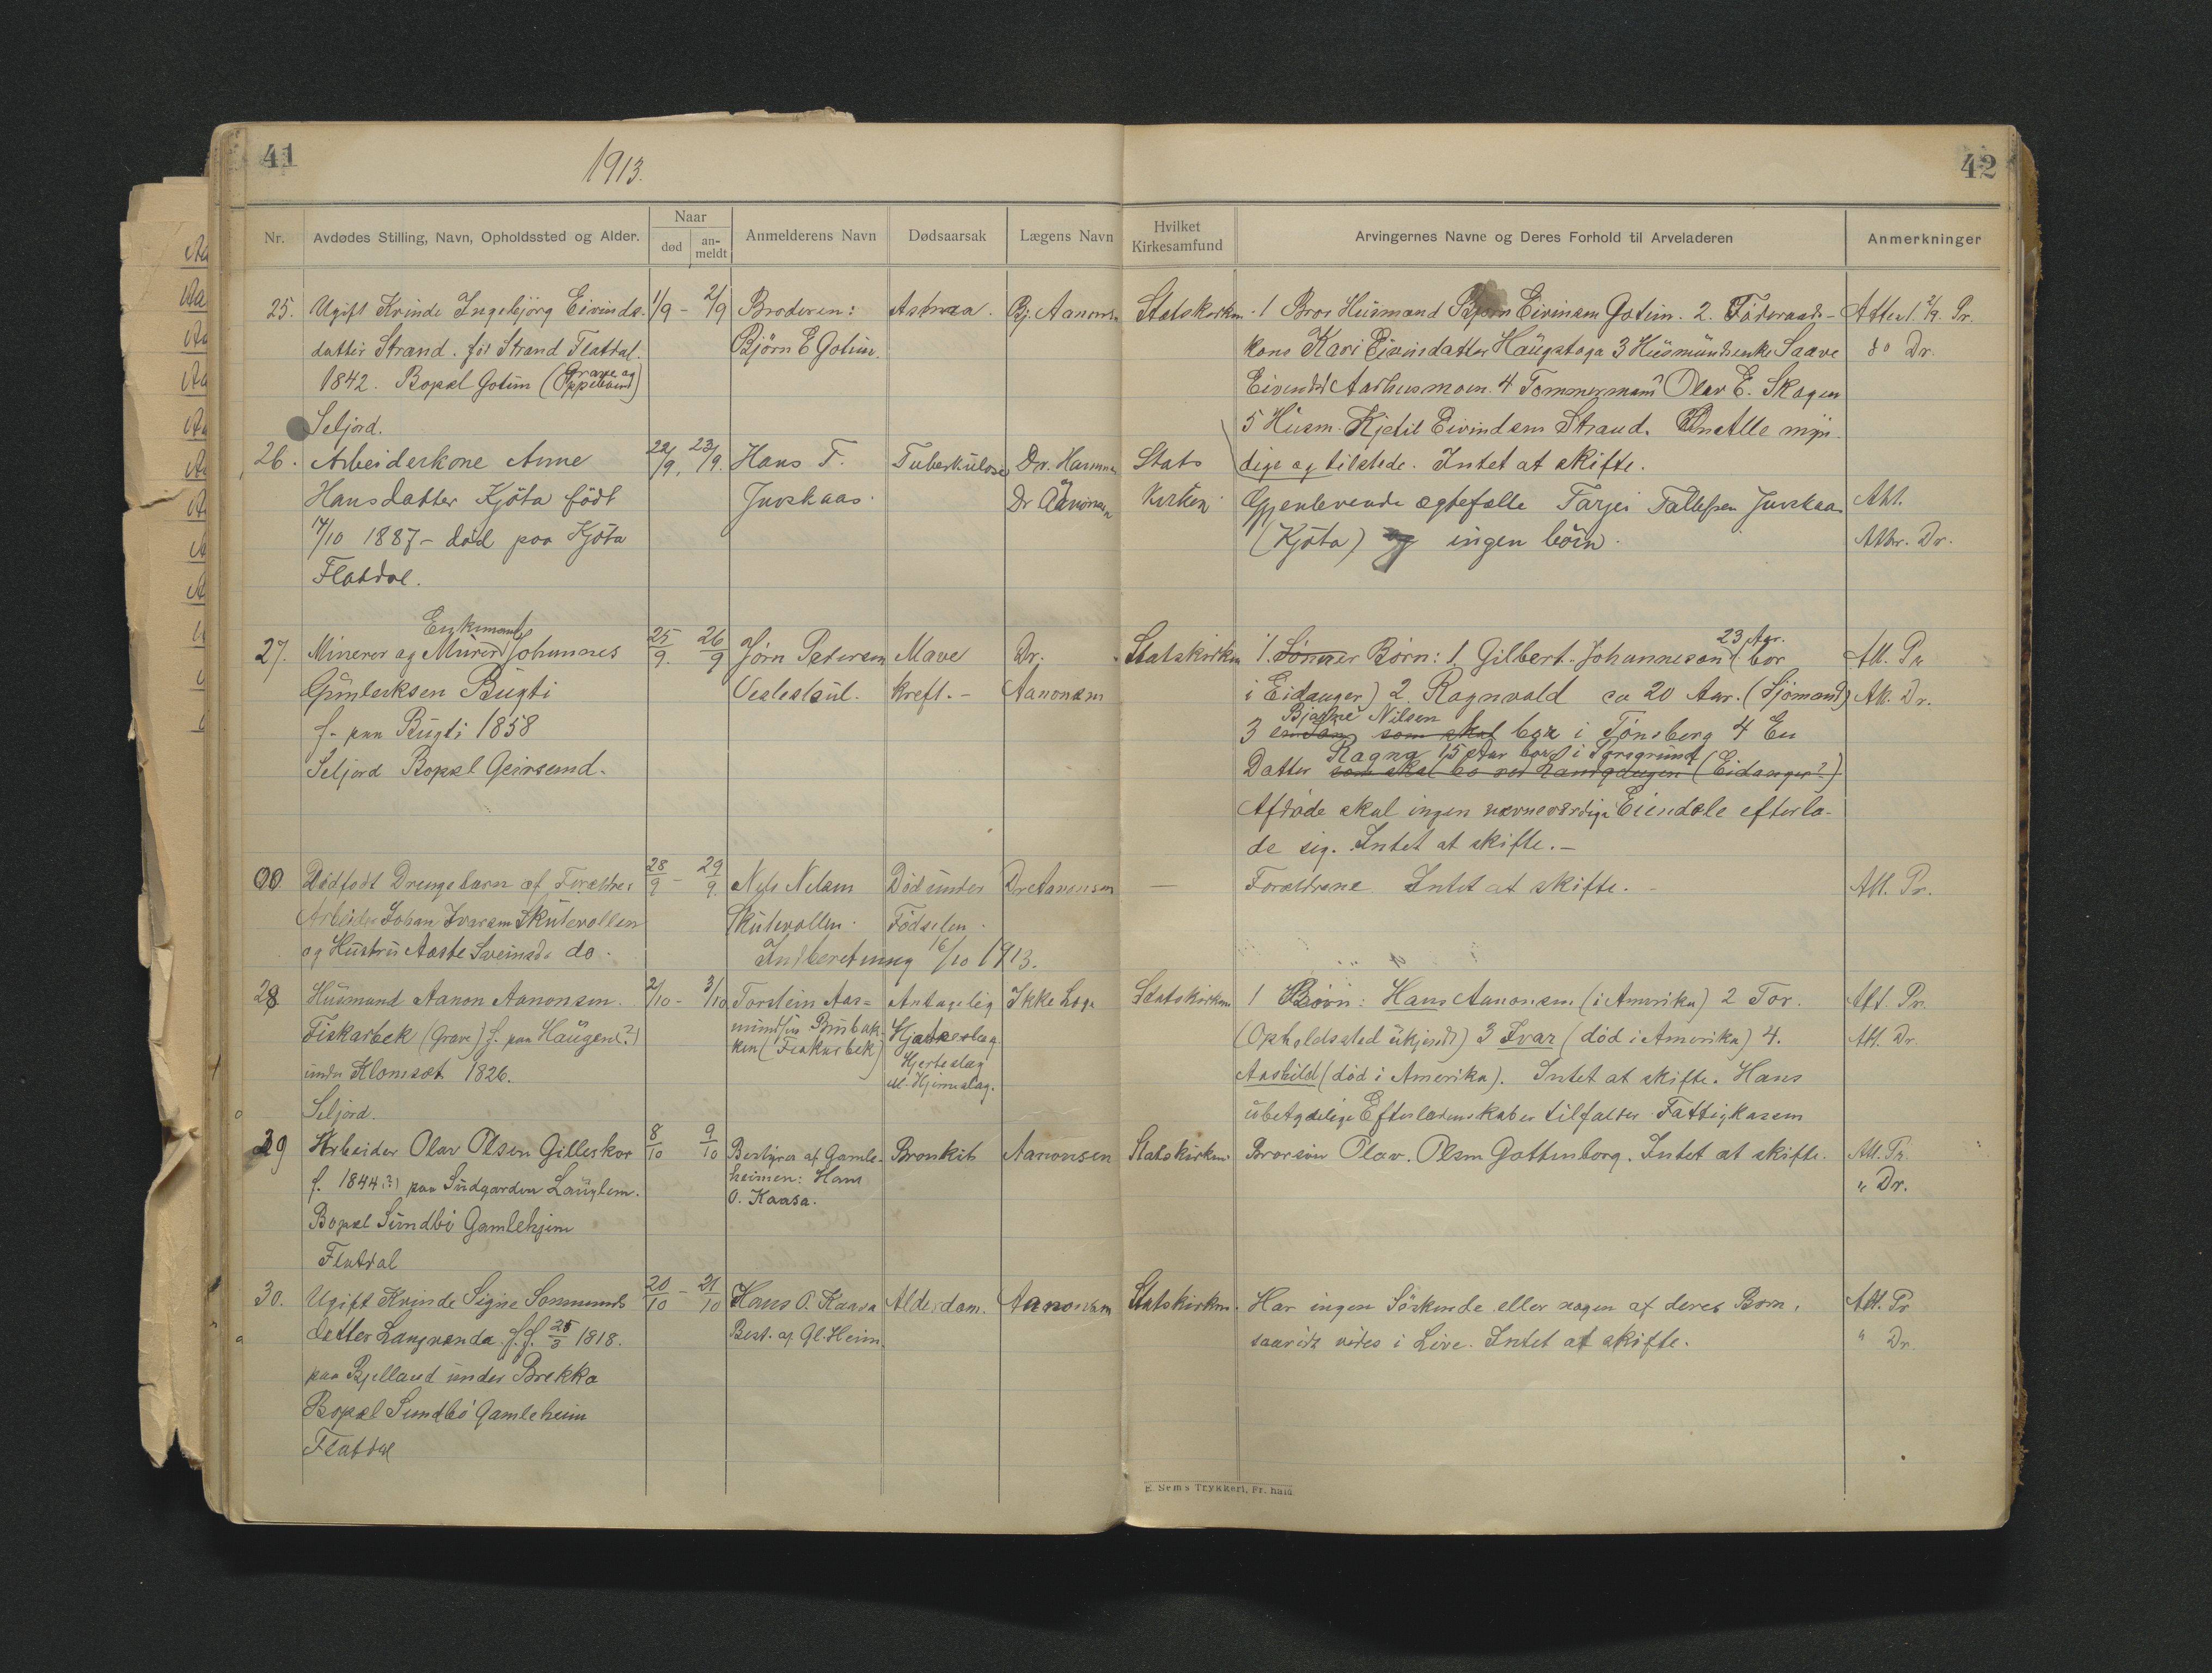 41
1913.
42
Nr.
Avdødes Stilling, Navn, Opholdssted og Alder.
Naar
død
an-
meldt
Anmelderens Navn
Dødsaarsak
Lægens Navn
Hvilket
Kirkesamfund
Arvingernes Navne og Deres Forhold til Arveladeren
Anmerkninger
25. Ugift Kvinde Ingebjörg Eivinds- 1/9 - 2/9 Broderen: Astma. Bj. Aanons Statskirken - 1 Bror Husmand Bjørn Eivinsen Gotün. 2. Föderaads-
datter Strand. föt Strand Flatdal. Björn E Gotün. kone Kari Eivindsdatter Haugstoga 3 Husmandsenke Saave do Dr.
1842. Bopæl Gotün ( Grave og Eivindsd Aarhusmoen. 4 Tømmermand Olav E. Skogen
Seljord. 5 Husm. Kjetil Eivindsen Strand. Alle myn-
26. Arbeiderkone Anne 22/9. 23/9. Hans T. Tuberkulose Dr. Stats dige og tilstede. Intet at skifte.
Hansdatter Kjöta födt Juvskaas. Dr Aanonsen Kirken Gjenlevende ægtefælle Tarjei Tallefsen Juvskaas Att.
17/10 1887 - död paa Kjöta (Kjöta) og ingen börn. Attr. Dr.
Flatdal.
Enkemand
27. Minerer og Murer Johannes 25/9. 26/9 Jörn Petersen Mave Dr. Statskirken 1. Sønner Börn: 1. Gilbert Johannesen (23 Aar. bor Att. Pr
Gunleiksen Bugti Veslestul. kreft. - Aanonsen i Eidanger) 2. Ragnvald ca 20 Aar. (Sjömand) Att. Dr.
f. paa Bugti 1858 3 Bjarne Nilsen som skal bor i Tönsberg 4 En
Seljord Bopæl Geirsund. Datter Ragna 15 Aar bor i Porsgrund
som skal bo ved (Eidanger?)
Afdöde skal ingen nævneværdige Eiendele efterla-
de sig. Intet at skifte. -
00 Dödfödt Drengebarn af Forældre 28/9 - 29/9. Nils Nilsen Död under Dr Aanonsen — Forældrene. Intet at skifte. - Att. Pr.
Arbeider Johan Ivarsen Skutevollen Skutevollen. Födselen.
og Hustru Aaste Sveinsd. do. Indberetning 16/10 1913.
28 Husmand Aanon Aanonsen. 2/10 - 3/10 Torstein Aas= Antagelig Ikke Læge Statskirken 1 Börn: Hans Aanonsen (i Amerika) 2 Tor. Att. Pr.
Fiskarbek (Grave) f. paa Haugen(?) mundsen (Fiskarbek) Hjerteslag (Opholdssted ukjendt) 3 Ivar (död i Amerika) 4. Att. Dr
under Klomset 1826. Hjerteslag Aashild (död i Amerika). Intet at skifte. Hans
Seljord. el. Hjerneslag. ubetydelige Efterladenskaber tilfalder Fattigkassen
29 Arbeider Olav Olsen Gilleskor 8/10 9/10 Bestyrer af Gamle- Bronkit Aanonsen Statskirken Brorsön Olav. Olsen Gottenborg. Intet at skifte. Att. Pr
f. 1844(?) paa Sudgarden heimen: Hans " Dr.
Bopæl Sundbö Gamlehjem O. Kaasa.
Flatdal
30. Ugift Kvinde Signe Sonmunds 20/10 - 21/10 Hans O. Kaasa Alderdom. Aanonsen Statskirken. Har ingen Söskende eller nogen af deres Born, Att. Pr
datter Langvonda. f. f. 25/3 1818. Best. af Gl. Heim. saavidt vides i Live. Intet at skifte. " Dr.
paa Bjelland under Brekka
Bopæl Sundbö Gamleheim
Flatdal
E. Sem's Trykkeri, Fr. hald.